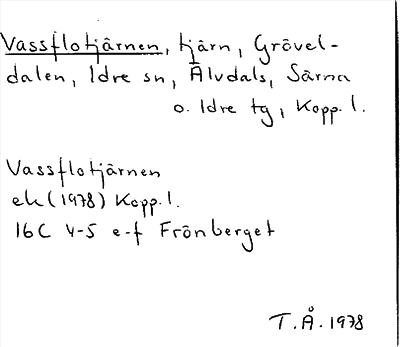 Vassflotjärnen, tjärn, Grövel-
dalen, Idre sn, Älvdals, Särna
o. Idre tg, Kopp. l.
Vassflotjärnen
ek (1978) Kopp. l.
16C 4-5 e-f Frönberget
T.Å. 1978